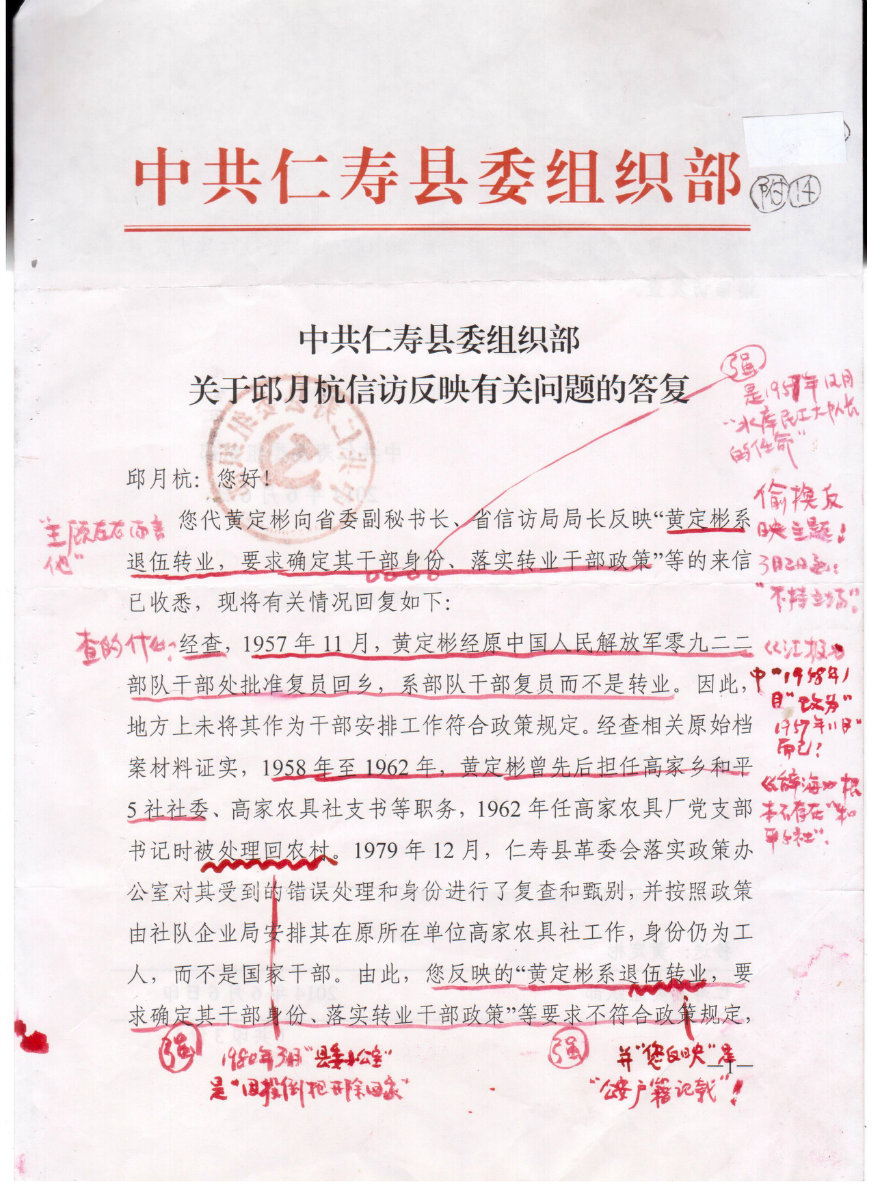 中共仁寿县委组织部
附 14
中共仁寿县委组织部
关于邱月杭信访反映有关问题的答复
强
是1957年12月
"水库民工大队长
的任命"
邱月杭：您好！
您代黄定彬向省委副秘书长、省信访局局长反映“黄定彬系
退伍转业，要求确定其干部身份、落实转业干部政策”等的来信
已收悉，现将有关情况回复如下：
偷换反
映主题！
"王顾左右而言
他"
查的什么？
经查，1957 年 11 月，黄定彬经原中国人民解放军零九二二
部队干部处批准复员回乡，系部队干部复员而不是转业。因此，
地方上未将其作为干部安排工作符合政策规定。经查相关原始档
案材料证实，1958 年至 1962 年，黄定彬曾先后担任高家乡和平
5 社社委、高家农具社支书等职务，1962 年任高家农具厂党支部
书记时被处理回农村。1979 年 12 月，仁寿县革委会落实政策办
公室对其受到的错误处理和身份进行了复查和甄别，并按照政策
由社队企业局安排其在原所在单位高家农具社工作，身份仍为工
人，而不是国家干部。由此，您反映的“黄定彬系退伍转业，要
求确定其干部身份、落实转业干部政策”等要求不符合政策规定，
中"1958年1
月"改为"
1957年11月"
而已？
《辞海》根
本不存在"和
平5社"．
强
1980年3月"县委办公室"
是"因投倒把开除回家"
强
并"您反映"是
"公安户籍记载"！
—1—